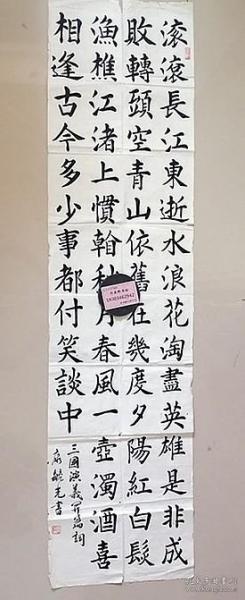 滚滚長江東逝水浪花淘盡英雄是非成
敗轉頭空青山依舊在幾度夕陽紅白髮
漁樵江渚上慣翰秋月春風一壺濁酒喜
相逢古今多少事都付笑談中
三國演義开篇詞